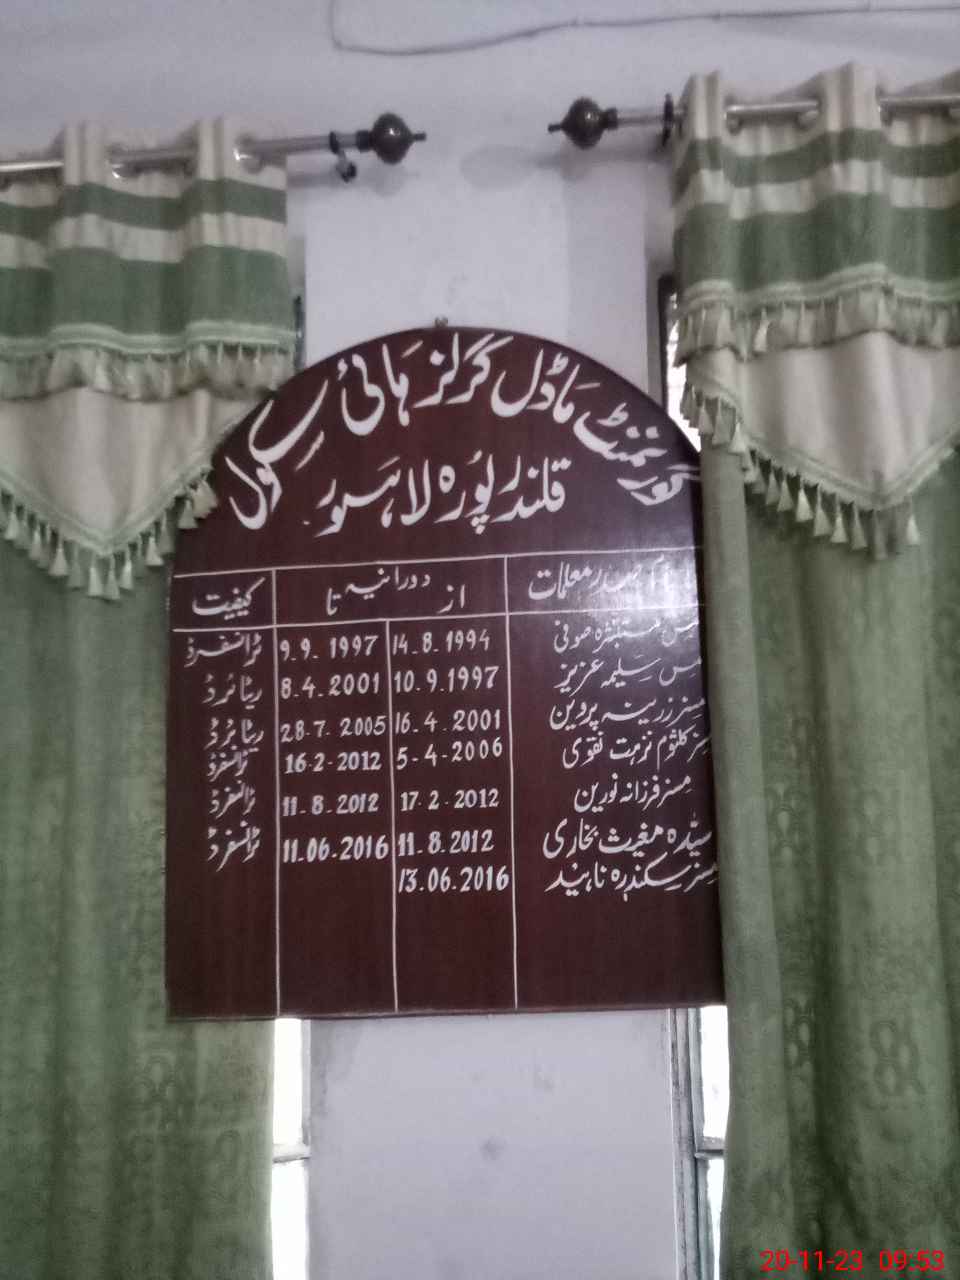 گورنمنٹ ماڈل گرلز ہائی سکول
قلندر پورہ لاہور
نام صدر معلمات دورانیہ کیفیت
از تا
مس مستبشرہ صوفی 14.8.1994 9.9.1997 ٹرانسفرڈ
مس سلیمہ عزیز 10.9.1997 8.4.2001 ریٹائرڈ
مسز زرینہ پروین 16.4.2001 28.7.2005 ریٹائرڈ
مسز کلثوم نزہت نقوی 5-4-2006 16-2-2012 ٹرانسفرڈ
مسز فرزانہ نورین 17-2-2012 11.8.2012 ٹرانسفرڈ
سیّدہ مغیث بخاری 11.8.2012 11.06.2016 ٹرانسفرڈ
مسز سکندرہ ناہید 13.06.2016
20-11-23 09:53